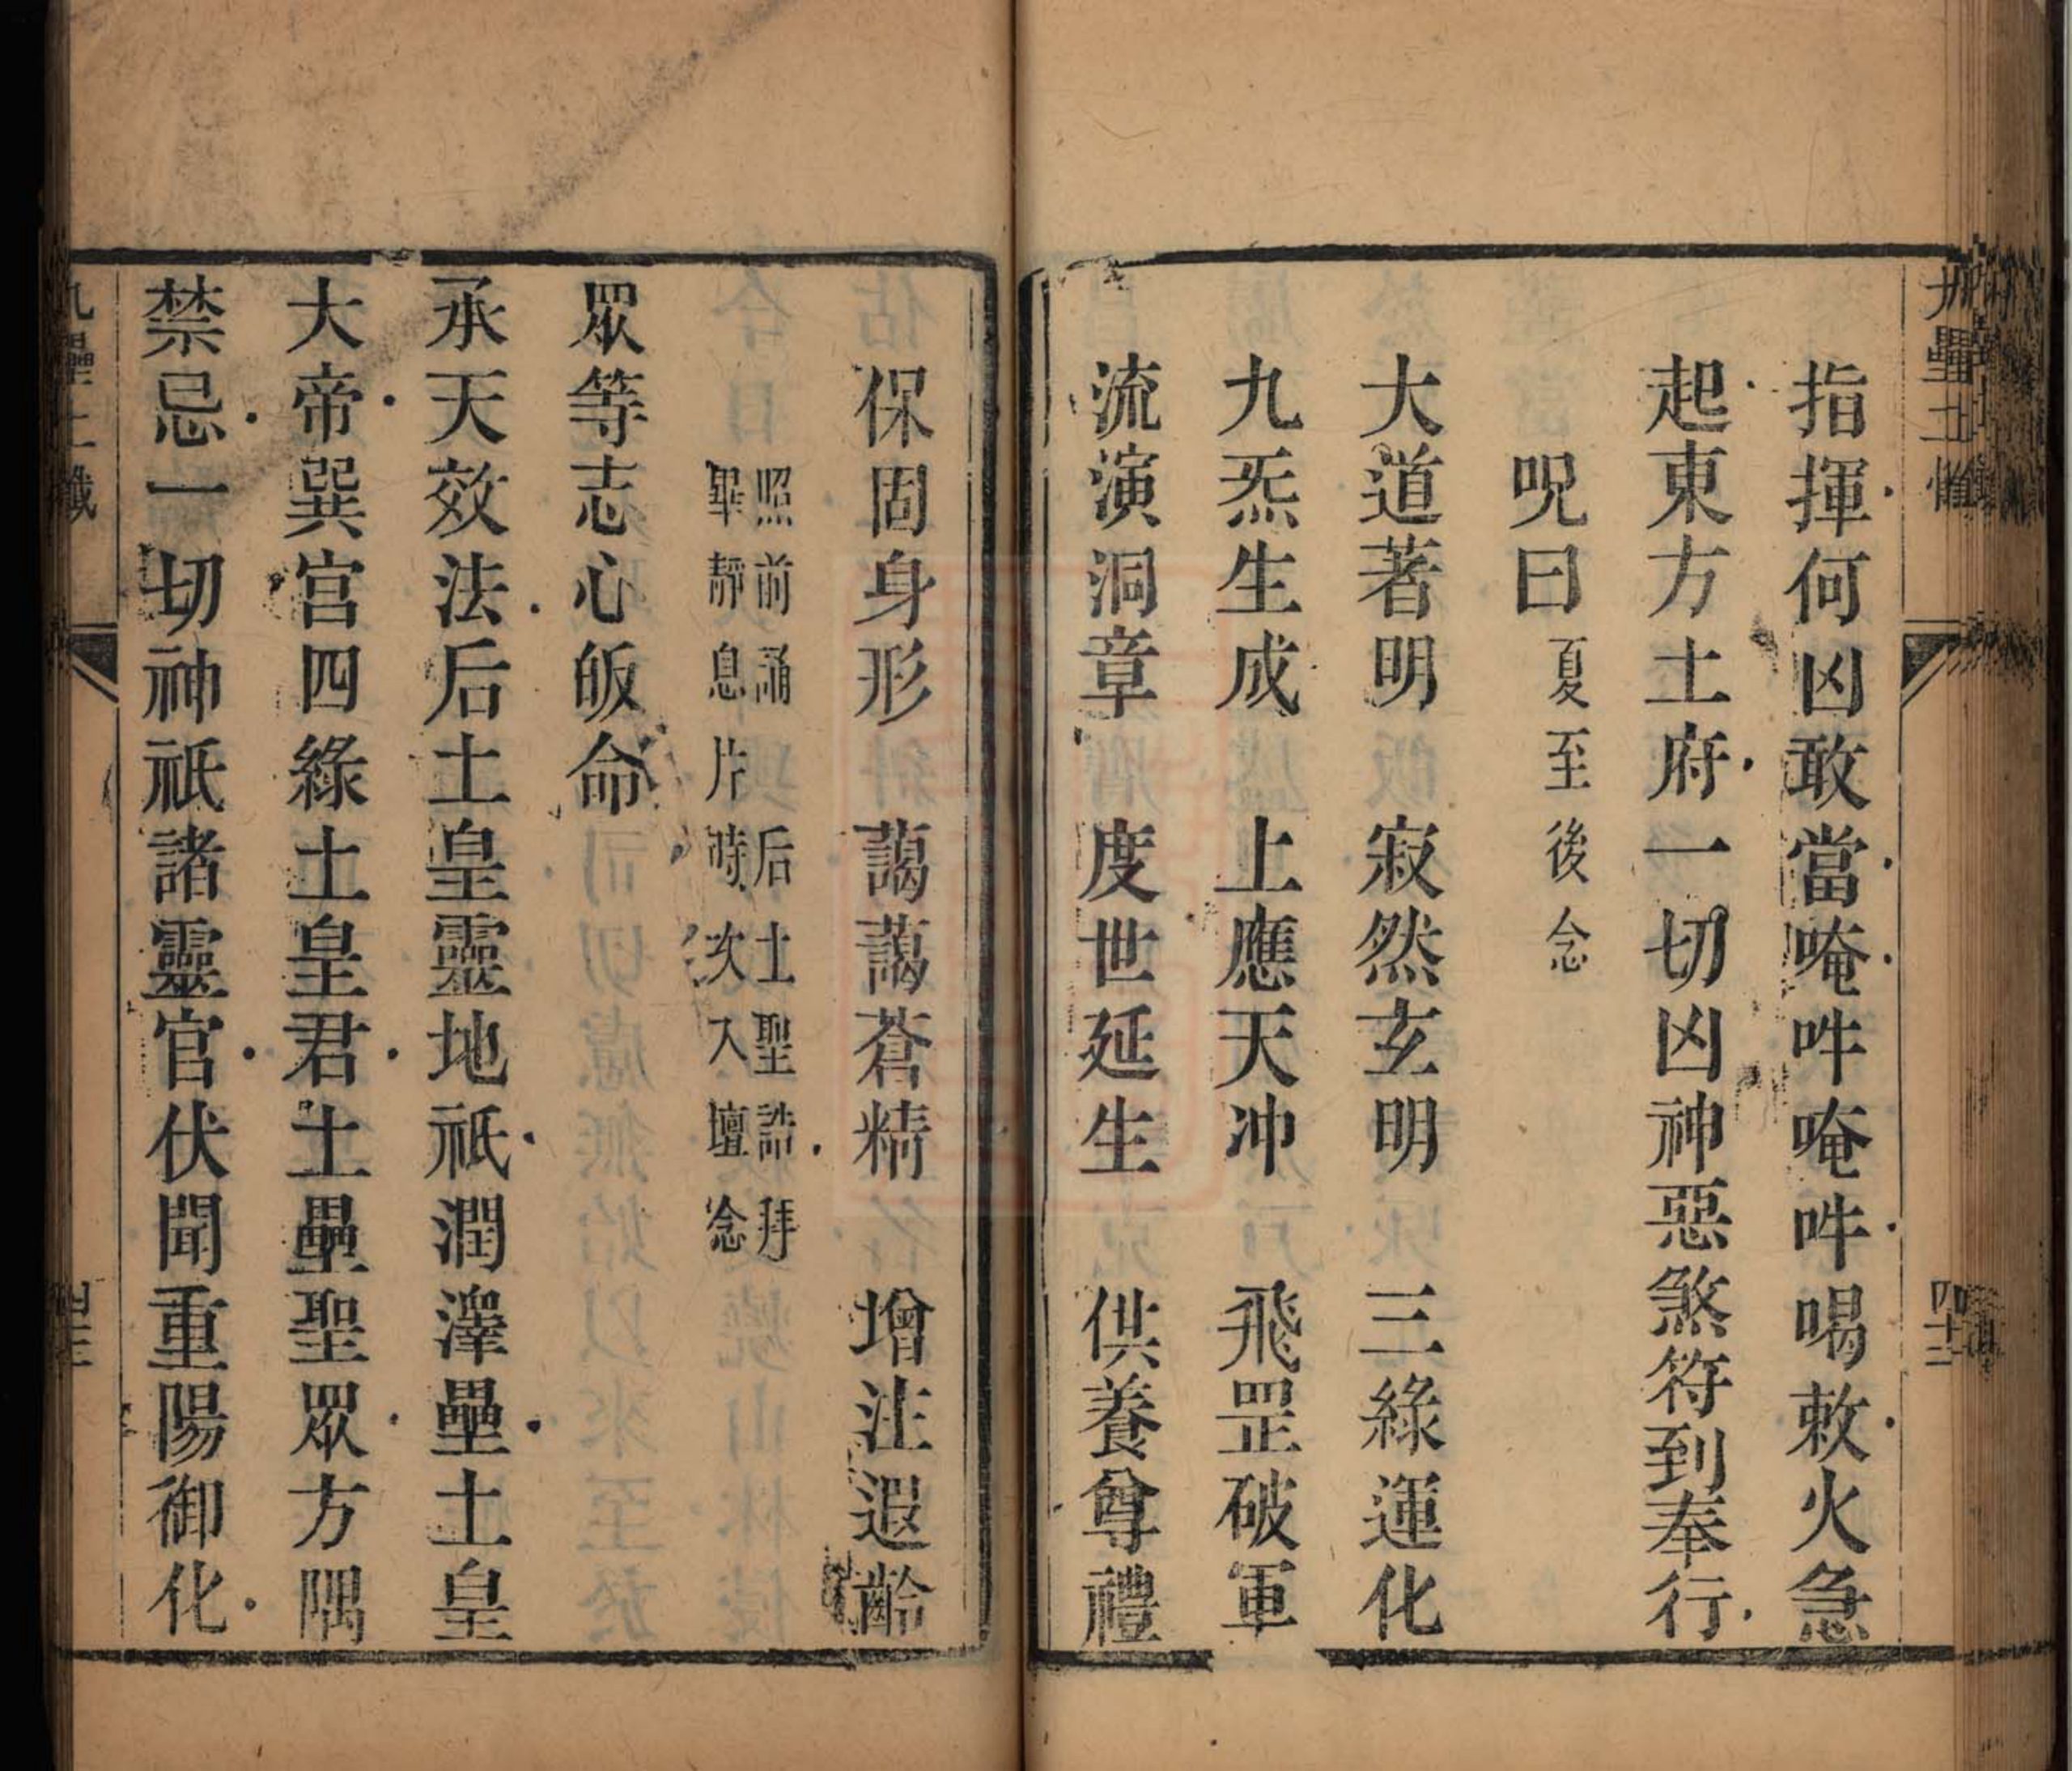 指揮何凶敢當唵吽唵吽喝敕火急
起東方土府一切凶神惡煞符到奉行
呪曰 夏至後念
大道著明 寂然玄明 三緣運化
九炁生成 上應天冲 飛罡破軍
流演洞章 度世延生 供養尊禮
保固身形 藹藹蒼精 增注遐齡
照前誦后土聖誥拜
畢靜息片時次入壇念
眾等志心皈命
承天效法后土皇靈地祇潤澤壘土皇
大帝巽宮四綠土皇君土壘聖眾方隅
禁忌一切神祇諸靈官伏聞重陽御化
壘土懺
四十二